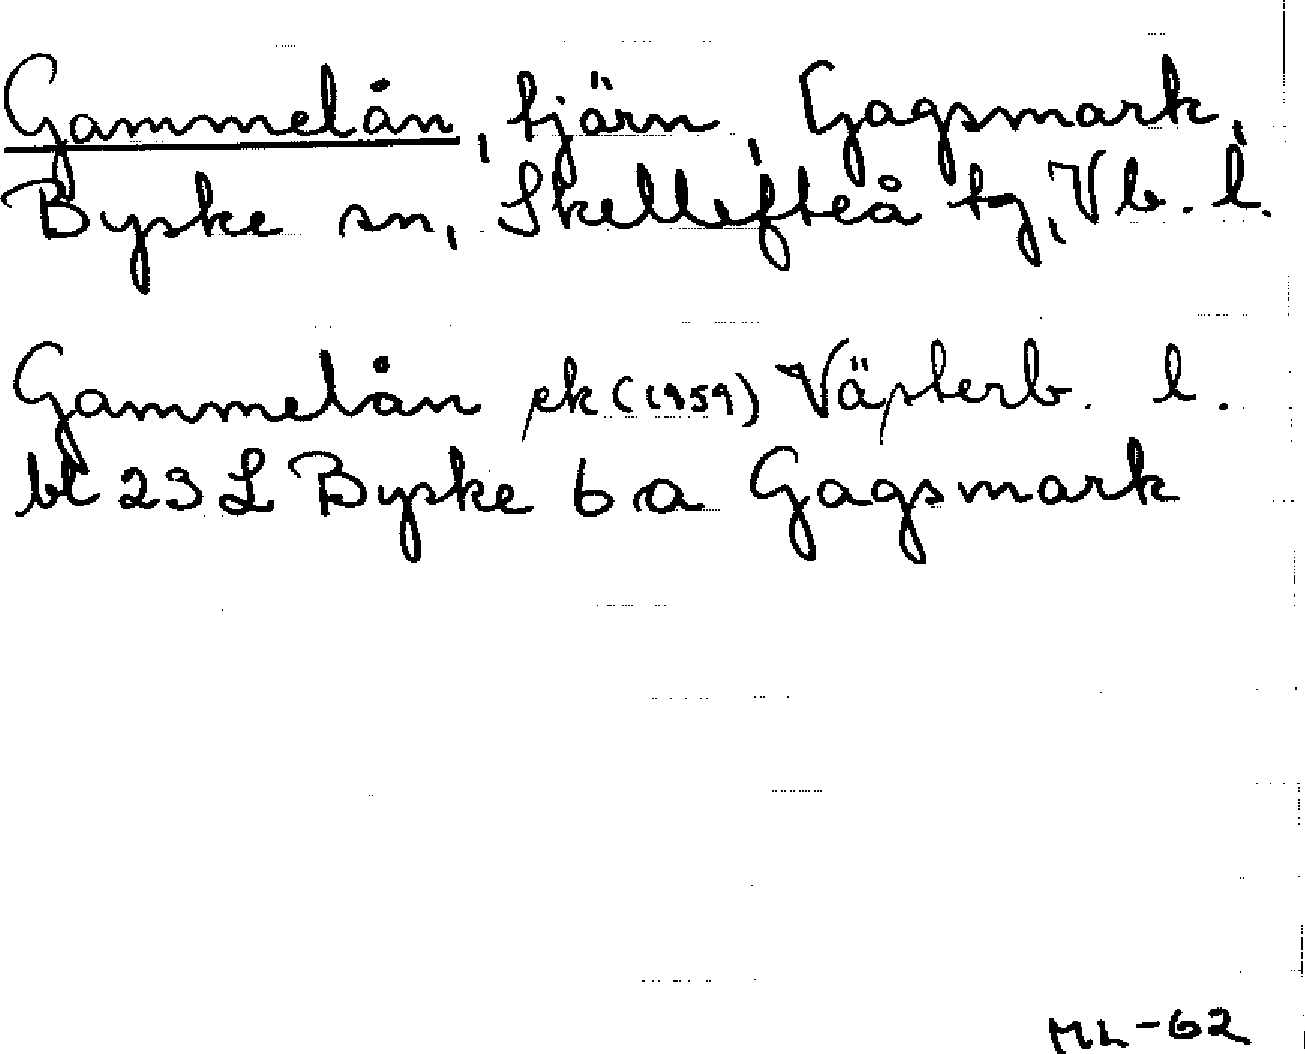 Gammelån, tjärn, Gagsmark,
Byske sn, Skellefteå tg, Vb. l.
Gammelån ek (1959) Västerb. l.
bl 23 L Byske 6 a Gagsmark
ML-62